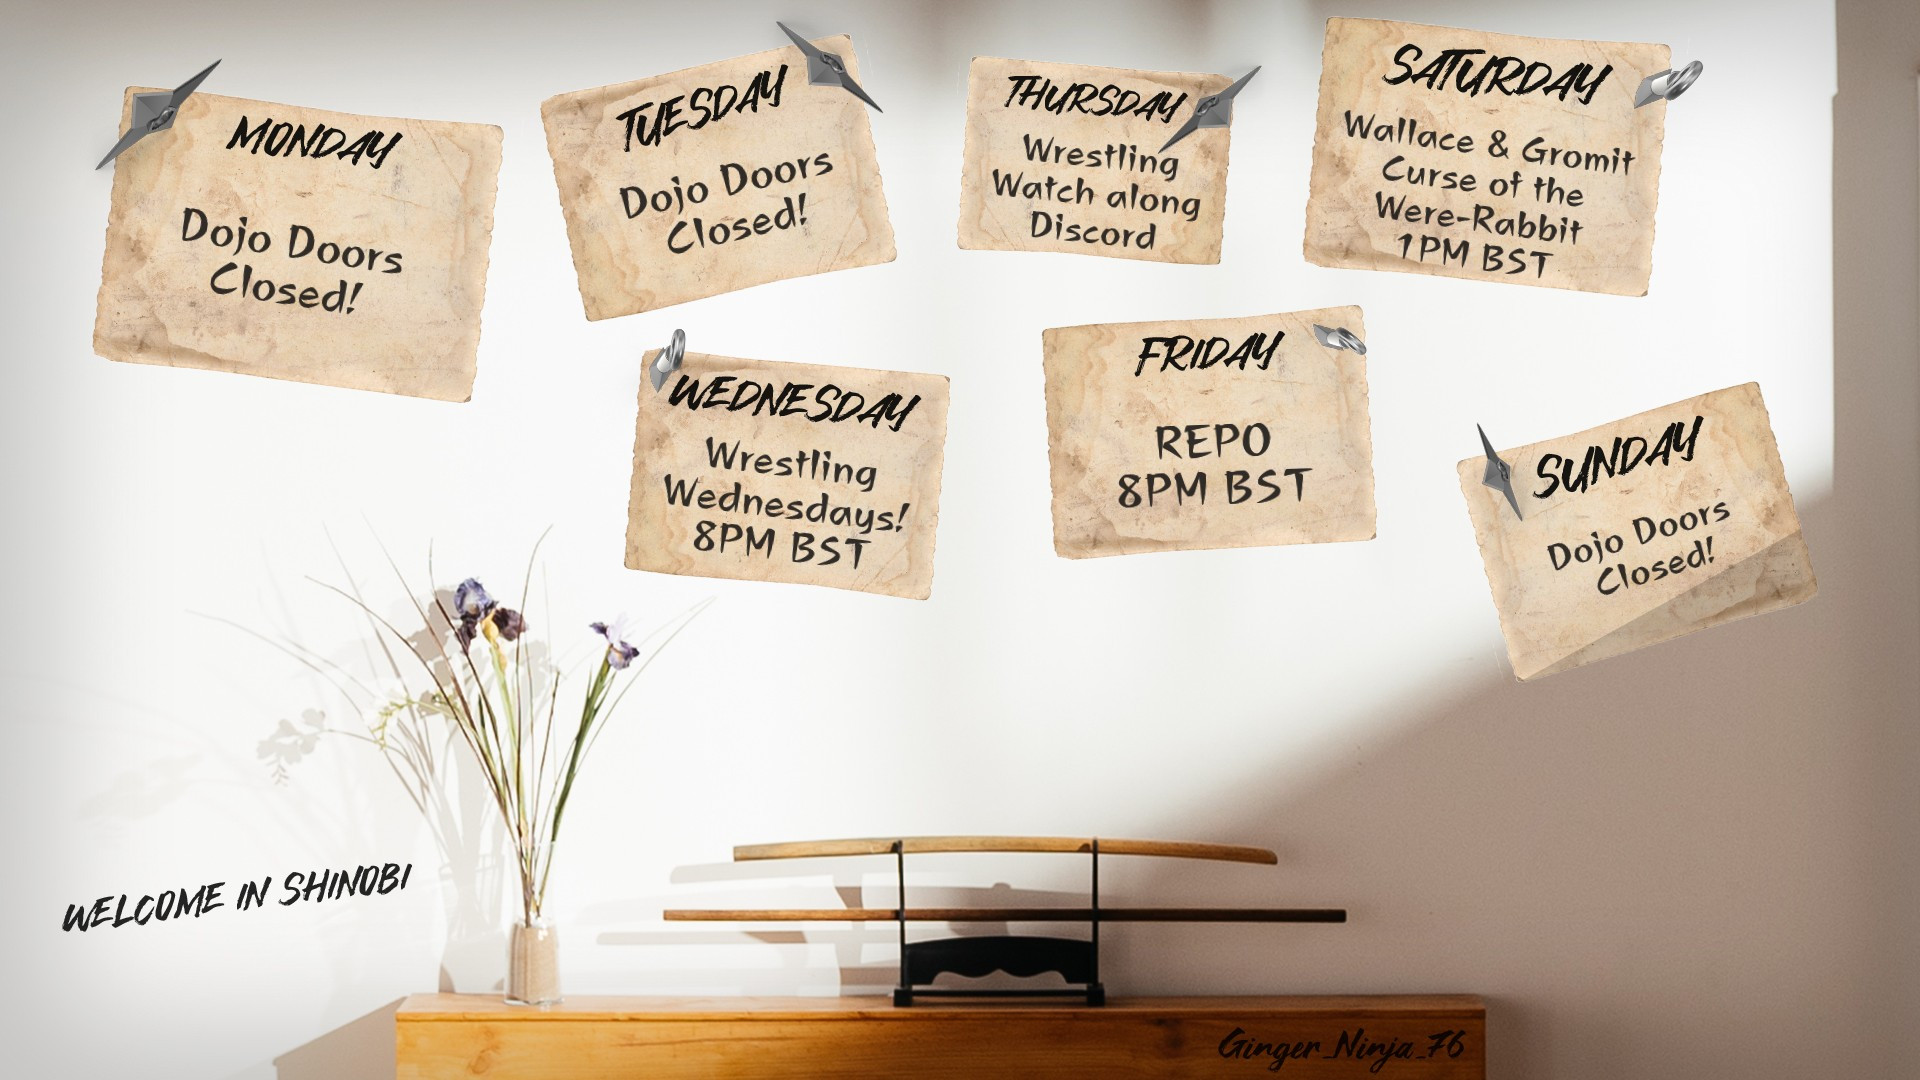 MONDAY
Dojo Doors
Closed!
TUESDAY
Dojo Doors
Closed!
WEDNESDAY
Wrestling
Wednesdays!
8PM BST
THURSDAY
Wrestling
Watch along
Discord
FRIDAY
REPO
8PM BST
SATURDAY
Wallace & Gromit
Curse of the
Were-Rabbit
1PM BST
SUNDAY
Dojo Doors
Closed!
WELCOME IN SHINOBI
Ginger_Ninja_76